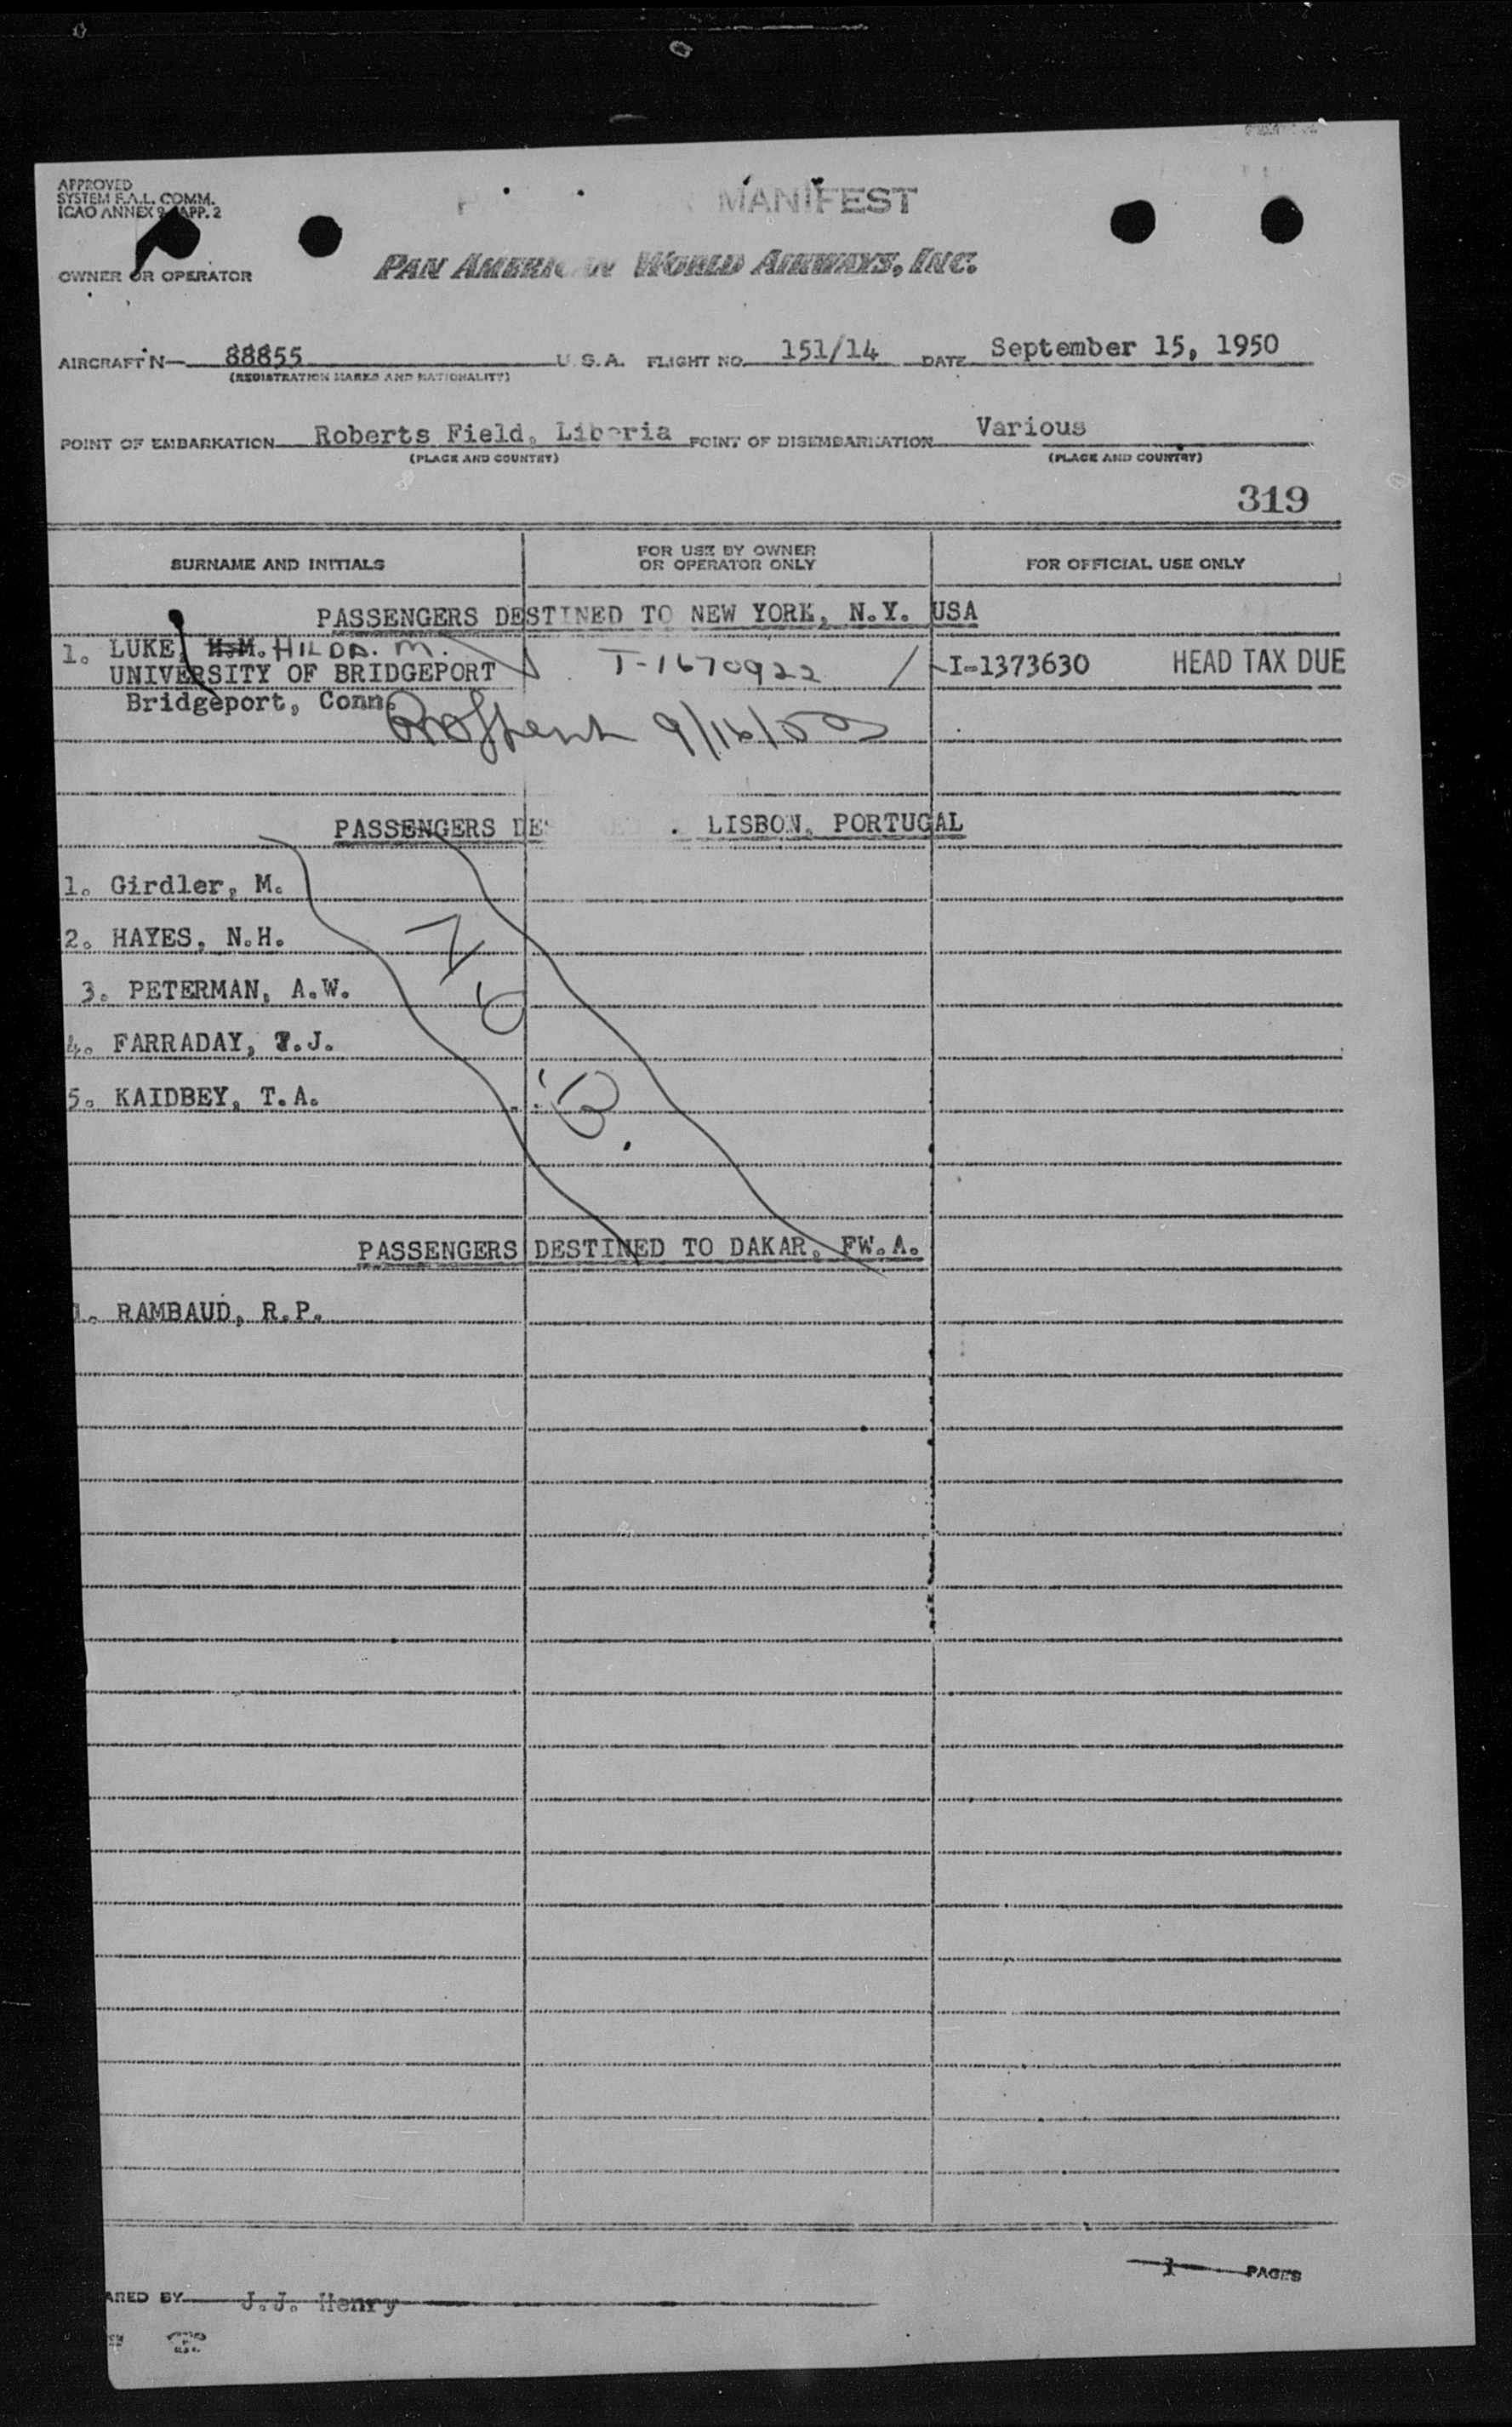 APPROVED
SYSTEM F.A.L. COMM.
ICAO ANNEX 9 APP. 2
MANIFEST
OWNER OR OPERATOR
PAN AMERICAN WORLD AIRWAYS, INC.
AIRCRAFT N— 88855 U.S.A. FLIGHT NO. 151/14 DATE September 15, 1950
(REGISTRATION MARKS AND NATIONALITY)
POINT OF EMBARKATION Roberts Field, Liberia POINT OF DISEMBARKATION Various
(PLACE AND COUNTRY) (PLACE AND COUNTRY)
319
SURNAME AND INITIALS FOR USE BY OWNER OR OPERATOR ONLY FOR OFFICIAL USE ONLY
PASSENGERS DESTINED TO NEW YORK, N.Y. USA
1. LUKE, H.M. HILDA. M.
UNIVERSITY OF BRIDGEPORT T-1670922 / -I-1373630 HEAD TAX DUE
Bridgeport, Conn.
9/16/50
PASSENGERS DES LISBON, PORTUGAL
1. Girdler, M.
2. HAYES, N.H.
3. PETERMAN, A.W.
4. FARRADAY, T.J.
5. KAIDBEY, T.A.
PASSENGERS DESTINED TO DAKAR, FW.A.
1. RAMBAUD, R.P.
1 PAGES
ARED BY J.J. Henry